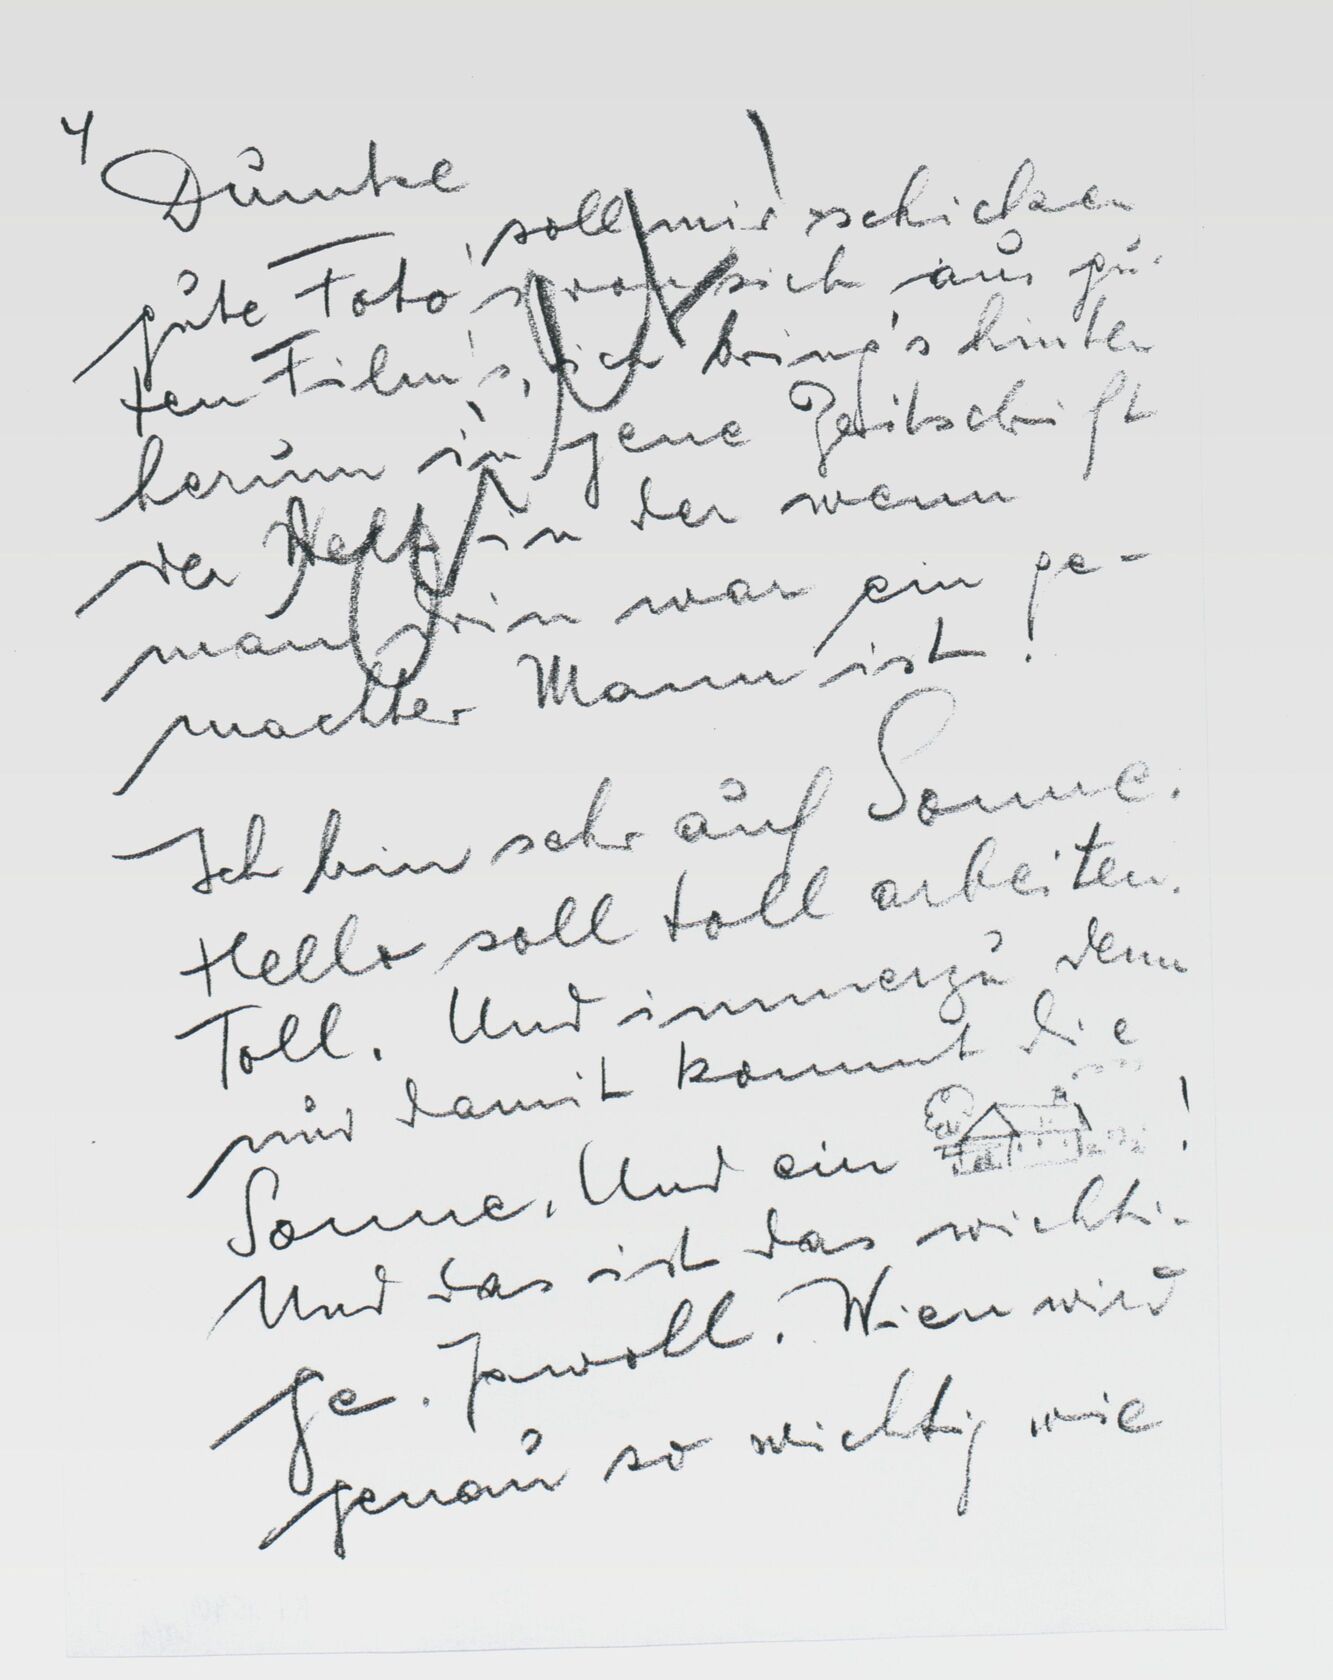 4
Dunkel
gute Foto's soll mir schicken
sich aus gu-
ten Film's, ich bring's hinten
herum in jene Zeitschrift
der Welt in der wenn
man drin war ein ge-
machter Mann ist!
Ich bin sehr auf Sonne.
Hello soll toll arbeiten.
Toll. Und immerzu denn
nur damit kommt die
Sonne. Und ein !
Und das ist das wichti-
ge. Jawoll. Wien wird
genau so wichtig wie